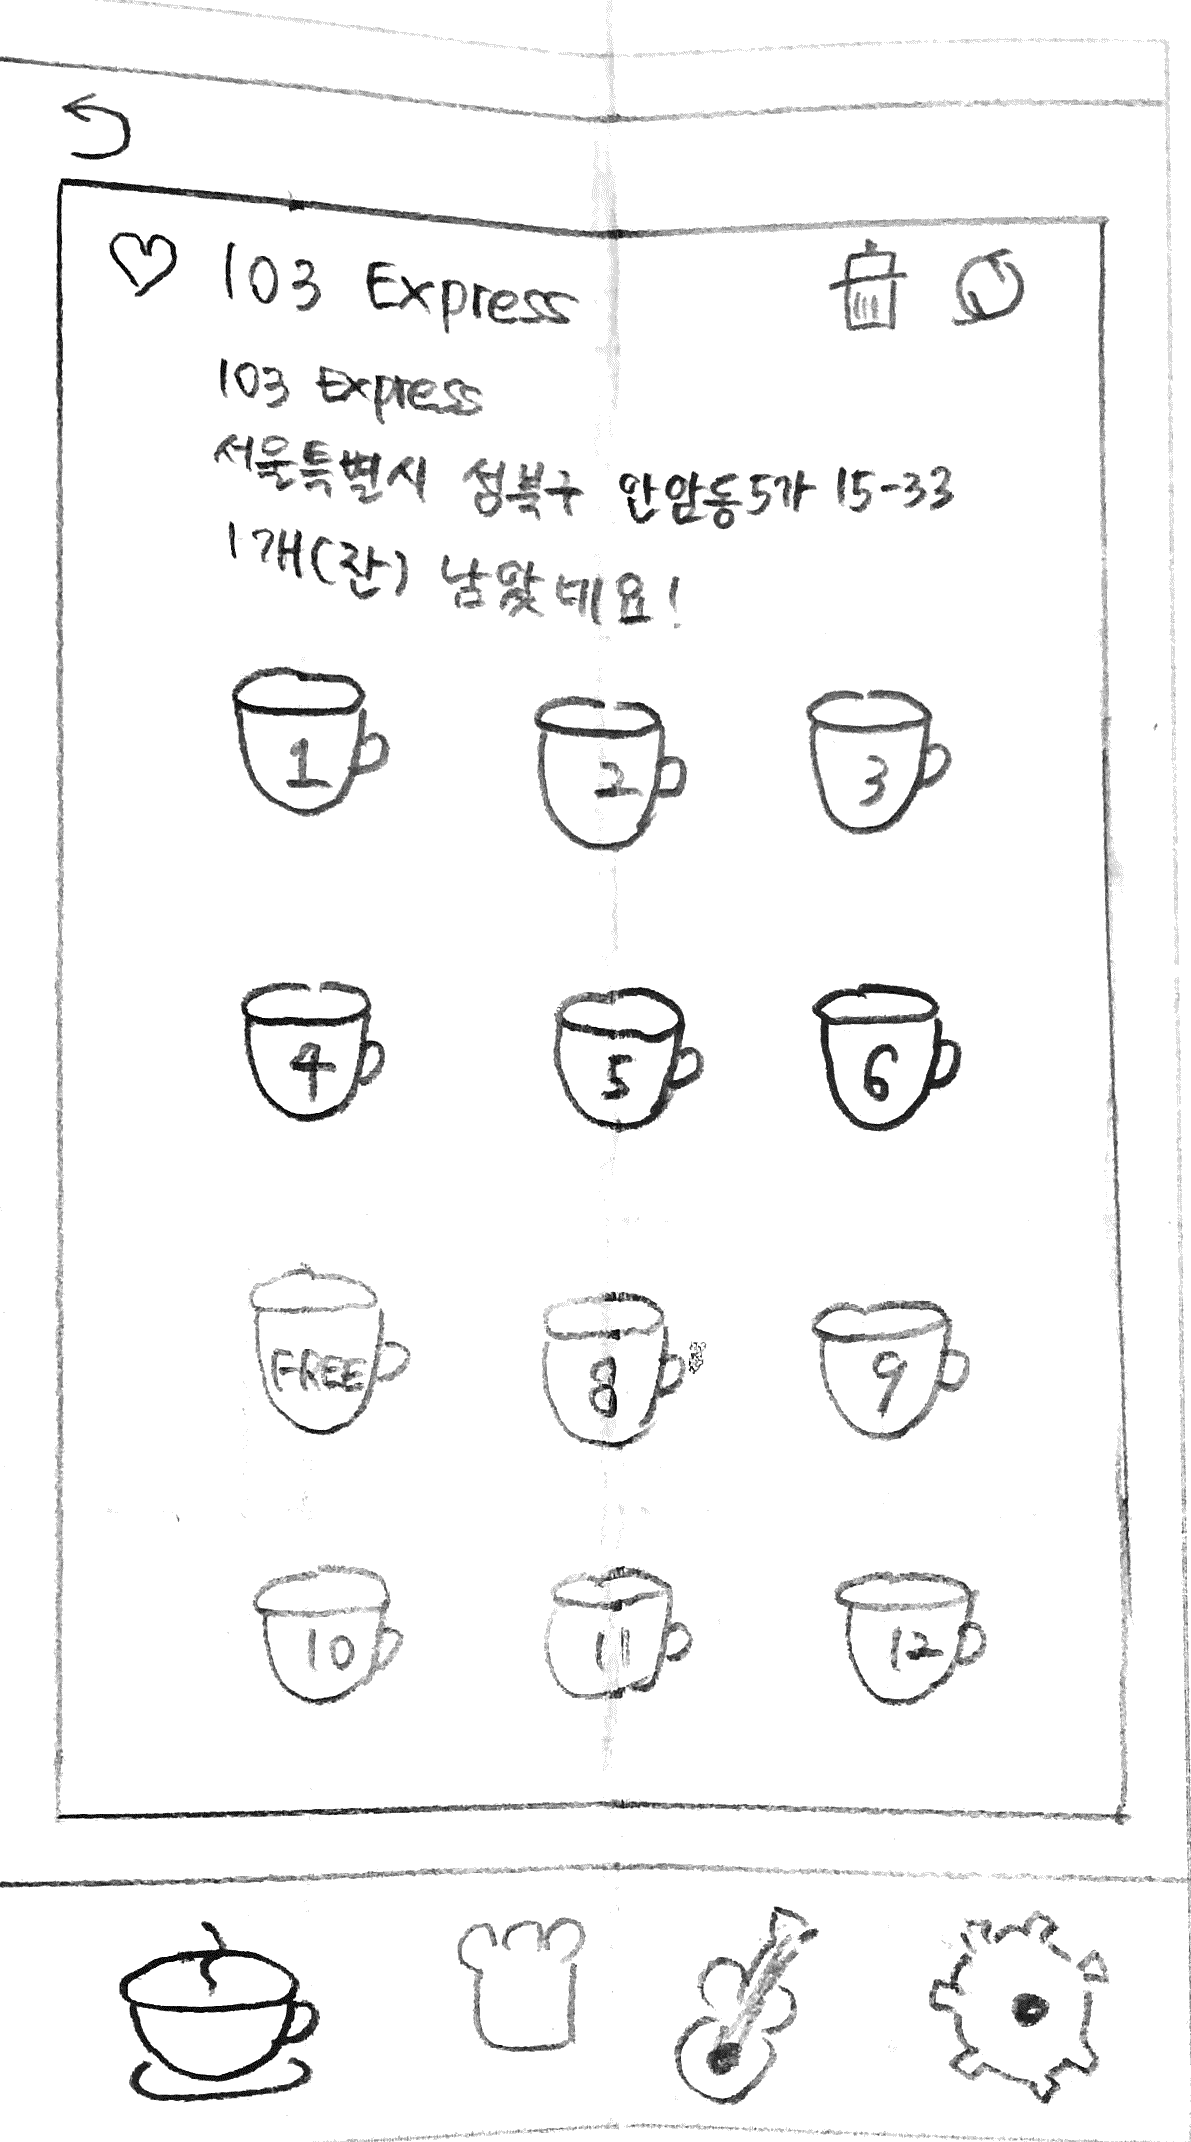 103 Express
103 Express
서울특별시 성북구 안암동5가 15-33
1개(잔) 남았네요!
1 2 3
4 5 6
FREE 8 9
10 11 12